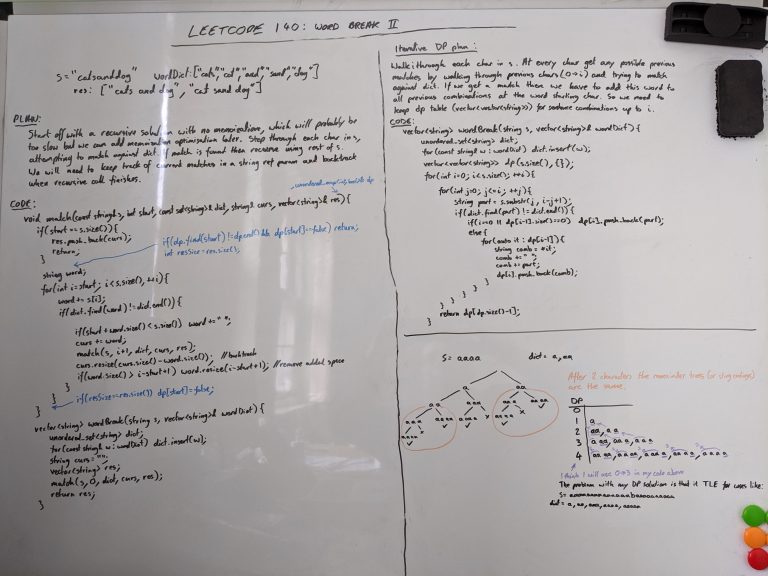 LEETCODE 140: WORD BREAK II
s="catsanddog" wordDict:["cats","cat","and","sand","dog"]
res: ["cats and dog", "cat sand dog"]
PLAN:
Start off with a recursive solution with no memoization, which will probably be
too slow but we can add memoization optimisation later. Step through each char in s,
attempting to match against dict. If match is found then recurse using rest of s.
We will need to keep track of current matches in a string ref param and backtrack
when recursive call finishes.
CODE:
, unordered_map<int,bool>& dp
void match(const string& s, int start, const set<string>& dict, string& curs, vector<string>& res) {
if(start == s.size()) {
res.push_back(curs);
return;
}
if(dp.find(start) != dp.end() && dp[start]==false) return;
int resSize=res.size();
string word;
for(int i=start; i<s.size(); ++i){
word += s[i];
if(dict.find(word) != dict.end()) {
if(start+word.size() < s.size()) word += " ";
curs += word;
match(s, i+1, dict, curs, res);
curs.resize(curs.size()-word.size()); // backtrack
if(word.size() > i-start+1) word.resize(i-start+1); // remove added space
}
}
if(resSize==res.size()) dp[start]=false;
}
vector<string> wordBreak(string s, vector<string>& wordDict) {
unordered_set<string> dict;
for(const string& w: wordDict) dict.insert(w);
string curs="";
vector<string> res;
match(s, 0, dict, curs, res);
return res;
}
Iterative DP plan:
Walk through each char in s. At every char get any possible previous
matches by walking through previous chars (0->i) and trying to match
against dict. If we get a match then we have to add this word to
all previous combinations at the word starting char. So we need to
keep dp table (vector<vector<string>>) for sentence combinations up to i.
CODE:
vector<string> wordBreak(string s, vector<string>& wordDict) {
unordered_set<string> dict;
for(const string& w: wordDict) dict.insert(w);
vector<vector<string>> dp(s.size(), {});
for(int i=0; i<s.size(); ++i){
for(int j=0; j<=i; ++j){
string part = s.substr(j, i-j+1);
if(dict.find(part) != dict.end()) {
if(j==0 || dp[j-1].size()==0) dp[i].push_back(part);
else {
for(auto it: dp[j-1]) {
string comb = *it;
comb += " ";
comb += part;
dp[i].push_back(comb);
}
}
}
}
}
return dp[dp.size()-1];
}
s= aaaa dict= a,aa
After 2 characters the remainder trees (or string endings)
are the same.
DP
0
1 a
2 aa, a a
3 a aa, aa a, a a a
I think I will use 0->3 in my code above
The problem with my DP solution is that it TLE for cases like:
dict = a, aa, aaa, aaaa, aaaaa